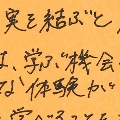 実を結ぶと
は、学ぶ機会
な体験が